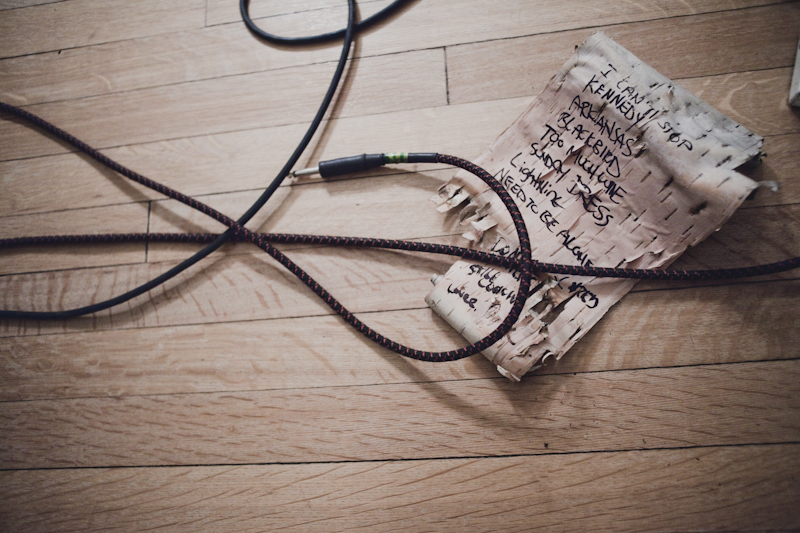 I CAN'T STOP
KENNEDY
ARKANSAS
BLACKBIRD
TOO MUCH WINE
SUNDAY DRESS
LIGHTNING
NEED TO BE ALONE
STILL